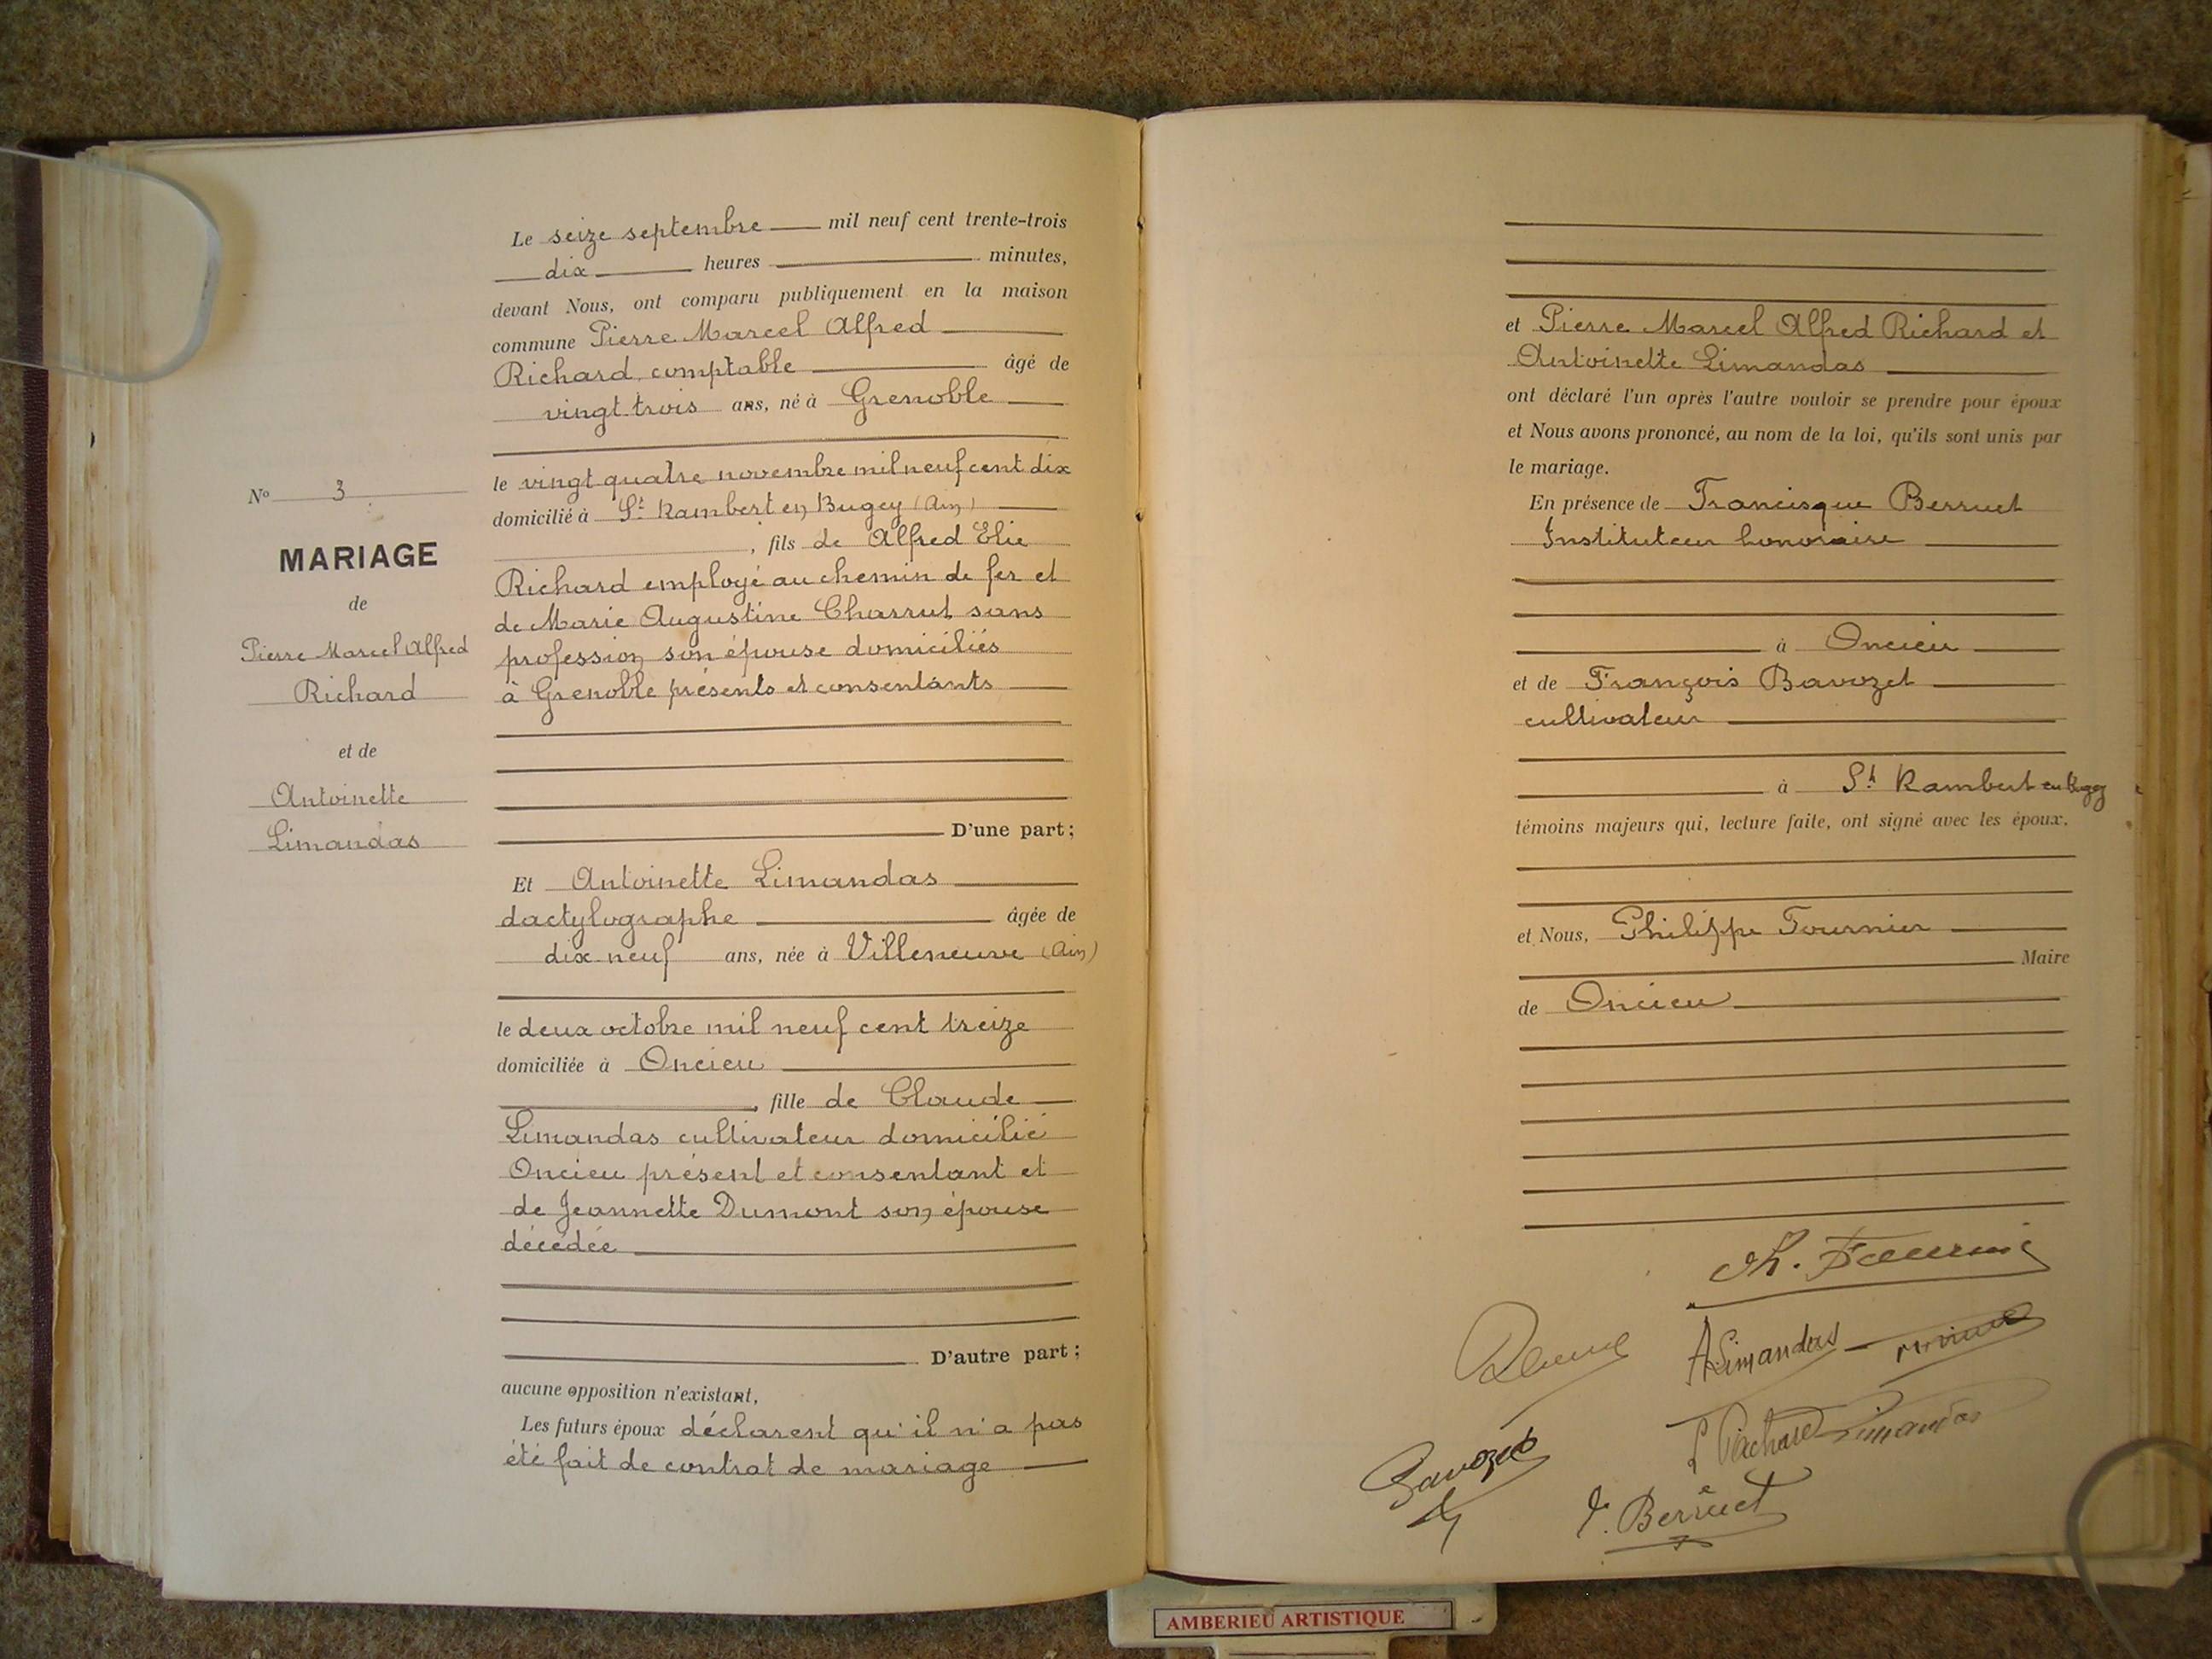 Le seize septembre mil neuf cent trente-trois
dix heures minutes,
devant Nous, ont comparu publiquement en la maison
commune Pierre Marcel Alfred
Richard comptable âgé de
vingt trois ans, né à Grenoble
le vingt quatre novembre mil neuf cent dix
domicilié à St Rambert en Bugey (Ain)
, fils de Alfred Elie
Richard employé au chemin de fer et
de Marie Augustine Charrut sans
profession son épouse domiciliés
à Grenoble présents et consentants
D'une part;
Et Antoinette Limandas
dactylographe âgée de
dix neuf ans, née à Villeneuve (Ain)
le deux octobre mil neuf cent treize
domiciliée à Oncieu
, fille de Claude
Limandas cultivateur domicilié
Oncieu présent et consentant et
de Jeannette Dumont son épouse
décédée
D'autre part;
aucune opposition n'existant,
Les futurs époux déclarent qu'il n'a pas
été fait de contrat de mariage
No 3
MARIAGE
de
Pierre Marcel Alfred
Richard
et de
Antoinette
Limandas
et Pierre Marcel Alfred Richard et
Antoinette Limandas
ont déclaré l'un après l'autre vouloir se prendre pour époux
et Nous avons prononcé, au nom de la loi, qu'ils sont unis par
le mariage.
En présence de Francisque Berruet
Instituteur honoraire
à Oncieu
et de François Bavozet
cultivateur
à St Rambert en Bugey
témoins majeurs qui, lecture faite, ont signé avec les époux.
et Nous, Philippe Fournier
Maire
de Oncieu
Ph. Fournier
A Limandas
Richard Limandas
Bavozet
F. Berruet
AMBERIEU ARTISTIQUE